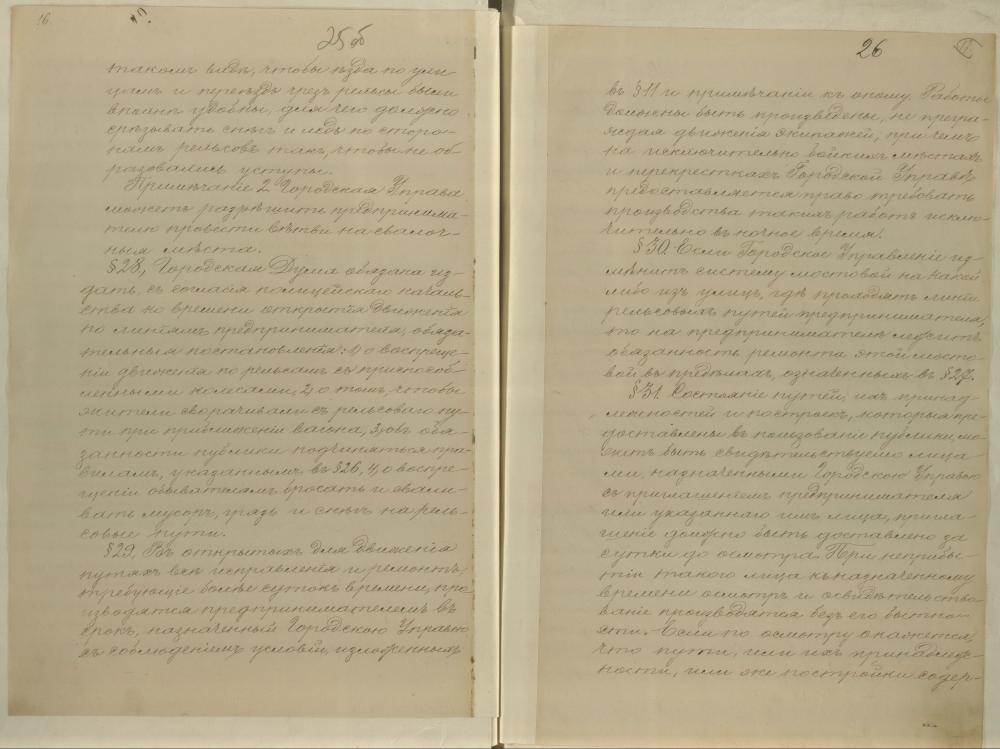 16.
25 об
такомъ видѣ, чтобы ѣзда по ули-
цамъ и переѣздъ чрезъ рельсы были
вполнѣ удобны, для чего должно
срѣзывать снѣгъ и ледъ по сторо-
намъ рельсовъ такъ, чтобы не об-
разовались уступы.
Примѣчаніе 2 Городская Управа
можетъ разрѣшить предпринима-
телю провести вѣтви на свалоч-
ныя мѣста.
§28, Городская Дума обязана из-
дать, съ согласія полицейскаго началь-
ства ко времени открытія движенія
по линіямъ предпринимателя, обяза-
тельныя постановленія: 1) о воспреще-
ніи движенія по рельсамъ съ приспособ-
ленными колесами, 2) о томъ, чтобы
жители сворачивали съ рельсоваго пу-
ти при приближеніи вагона, 3) объ обя-
занности публики подчиняться пра-
виламъ, указаннымъ въ §26, 4) о воспре-
щеніи обывателямъ бросать и свали-
вать мусоръ, грязь и снѣгъ на рель-
совые пути.
§29. Въ открытыхъ для движенія
путяхъ всѣ исправленія и ремонтъ,
требующіе болѣе сутокъ времени, про-
изводятся предпринимателемъ въ
срокъ, назначенный Городскою Управою
съ соблюденіемъ условій, изложенныхъ
26
въ §11 и примѣчаніи къ оному. Работы
должны быть произведены, не прегра-
ждая движенія экипажей, при чемъ
на исключительно бойкихъ мѣстахъ
и перекресткахъ Городской Управѣ
предоставляется право требовать
производства такихъ работъ исклю-
чительно въ ночное время.
§30. Если Городское Управленіе из-
мѣнитъ систему мостовой на какой
либо изъ улицъ, гдѣ проходятъ линіи
рельсовыхъ путей предпринимателя,
то на предпринимателѣ лежитъ
обязанность ремонта этой мосто-
вой въ предѣлахъ, означенныхъ въ §27.
§31. Состояніе путей, ихъ принад-
лежностей и построекъ, которыя пре-
доставлены въ пользованіе публики, мо-
жетъ быть свидѣтельствуемо лица-
ми, назначенными Городскою Управою
съ приглашеніемъ предпринимателя
или указаннаго имъ лица, пригла-
шеніе должно быть доставлено за
сутки до осмотра. При неприбы-
тіи такого лица къ назначенному
времени осмотръ и освидѣтельство-
ваніе производятся безъ его бытно-
сти. Если по осмотру окажется,
что пути, или ихъ принадлеж-
ности, или же постройки содер-